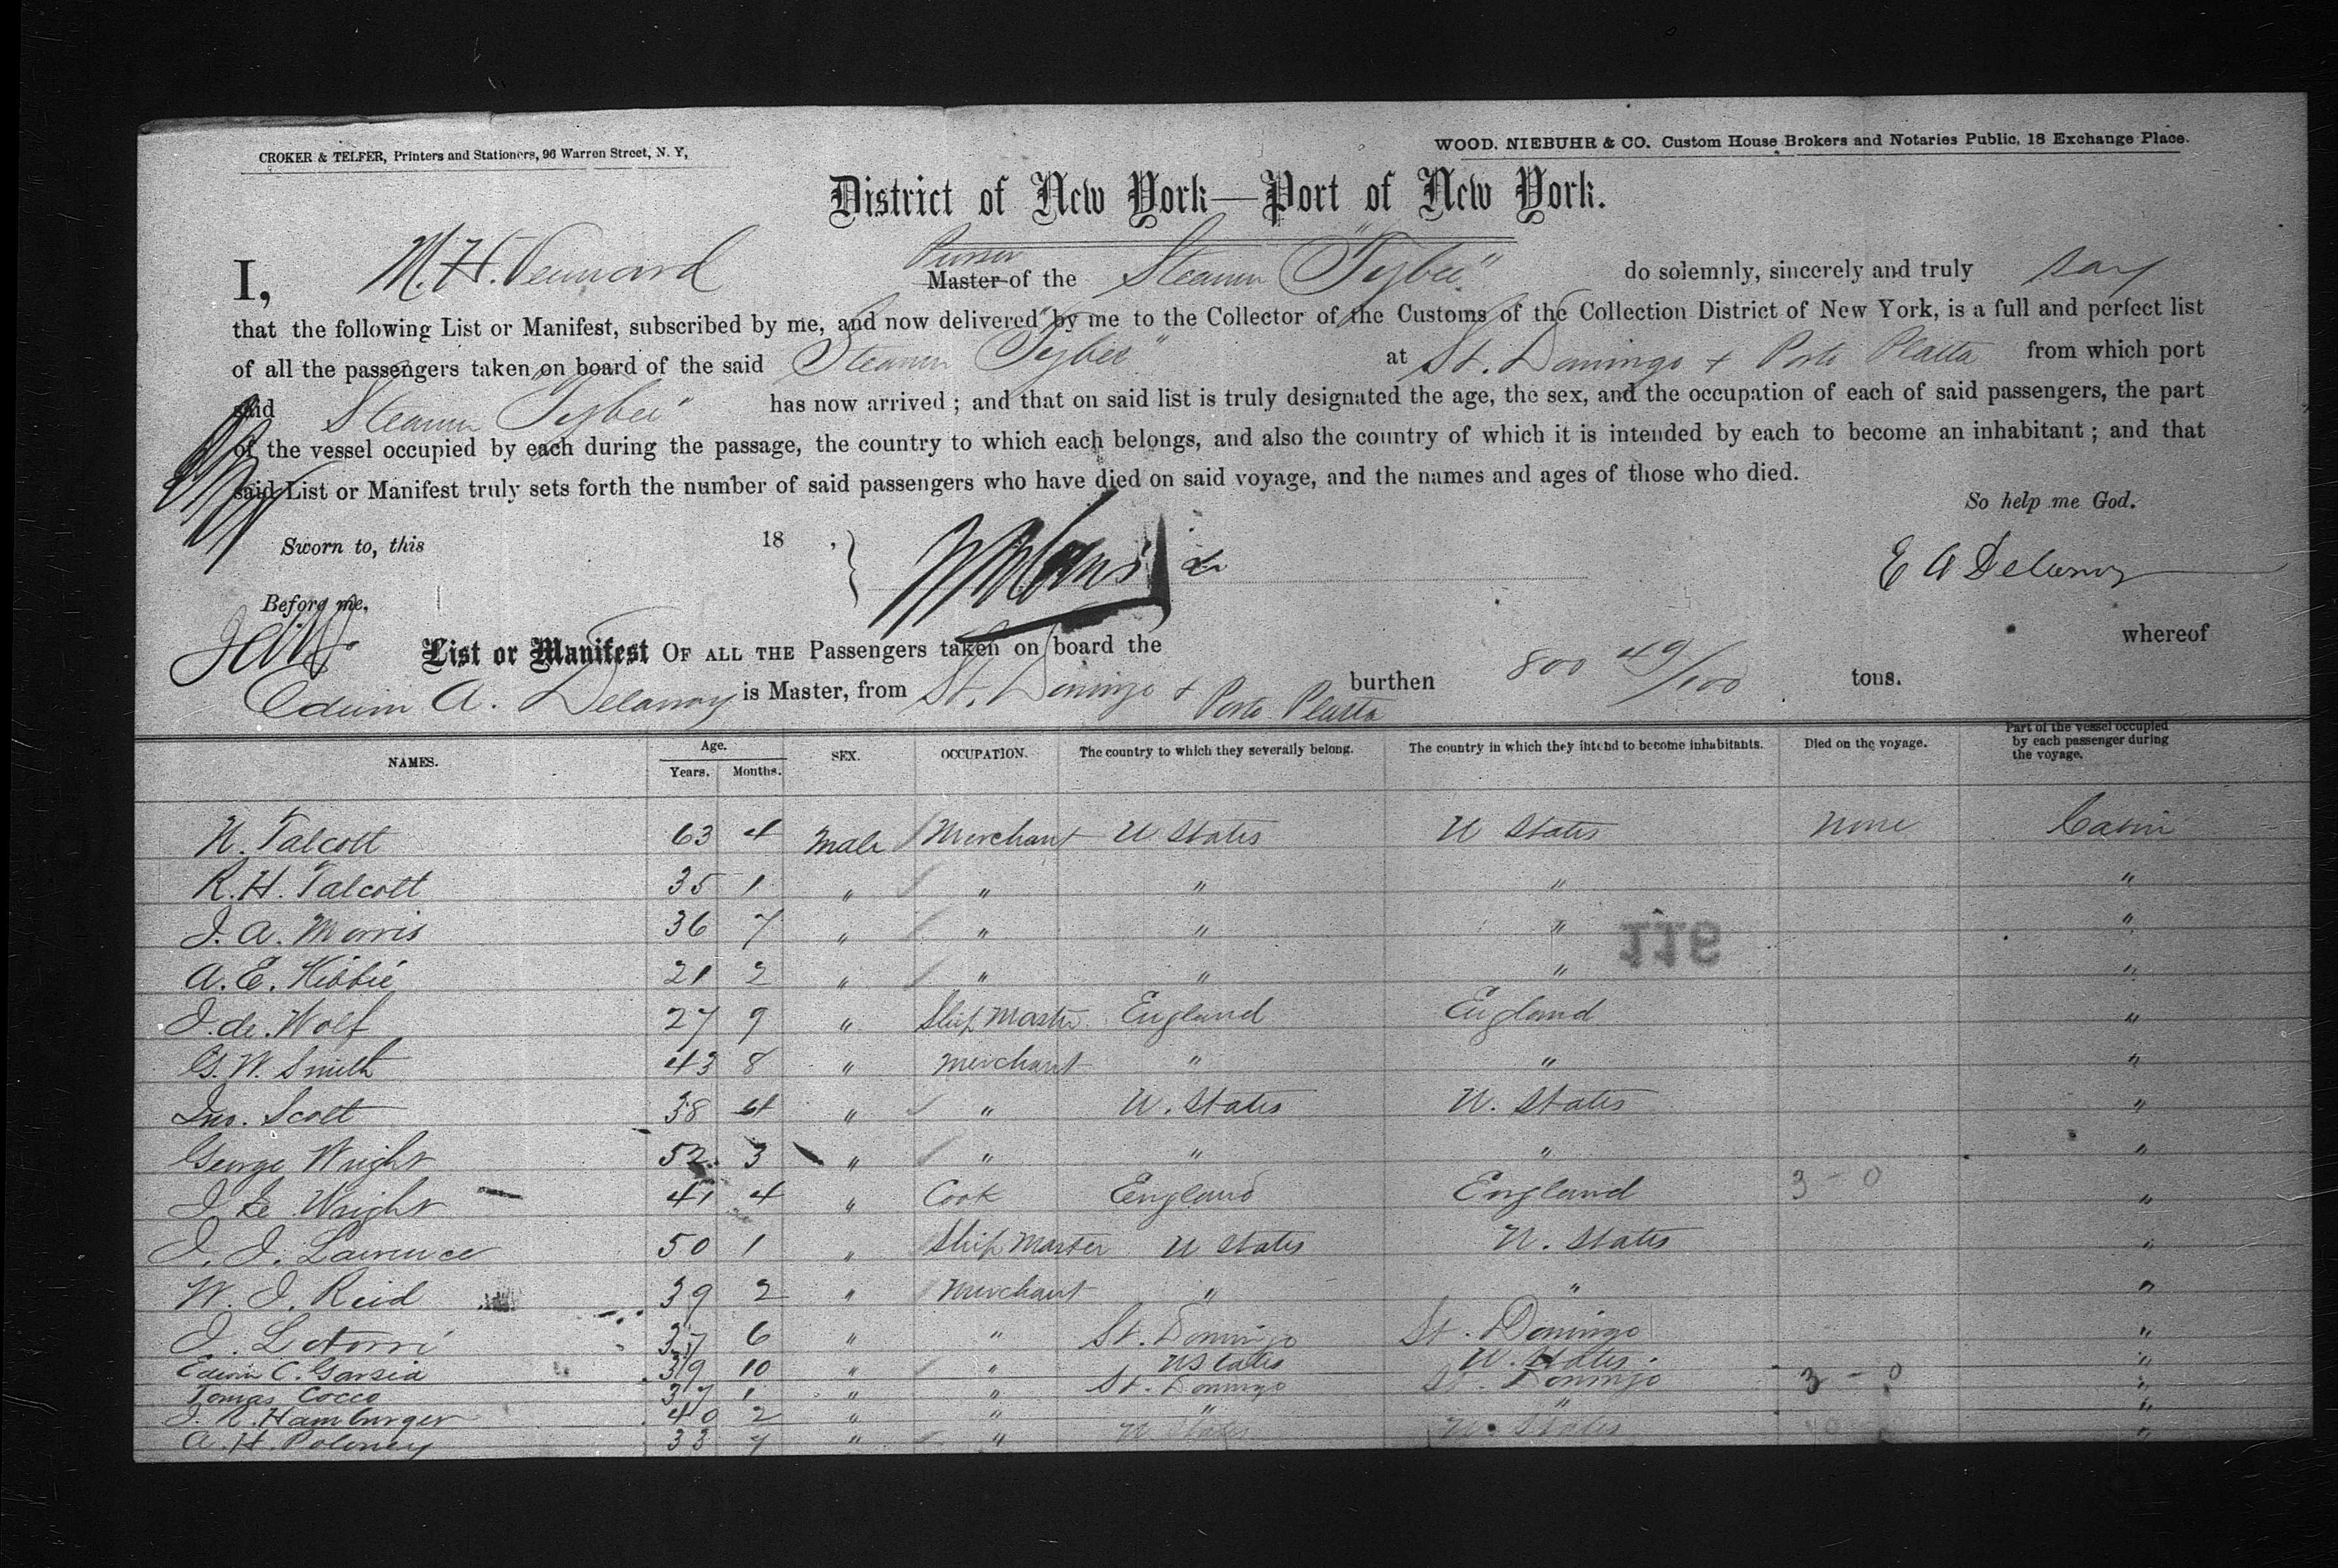 CROKER & TELFER, Printers and Stationers, 96 Warren Street, N. Y,
WOOD, NIEBUHR & CO. Custom House Brokers and Notaries Public, 18 Exchange Place.
District of New York—Port of New York.
Purser
I, M. H. Master of the Steamer "Tybee" do solemnly, sincerely and truly say
that the following List or Manifest, subscribed by me, and now delivered by me to the Collector of the Customs of the Collection District of New York, is a full and perfect list
of all the passengers taken on board of the said Steamer "Tybee" at St. Domingo + Porto Platta from which port
said Steamer "Tybee" has now arrived; and that on said list is truly designated the age, the sex, and the occupation of each of said passengers, the part
of the vessel occupied by each during the passage, the country to which each belongs, and also the country of which it is intended by each to become an inhabitant; and that
said List or Manifest truly sets forth the number of said passengers who have died on said voyage, and the names and ages of those who died.
So help me God.
Sworn to, this 18 ,
E A Delanoy
Before me,
List or Manifest OF ALL THE Passengers taken on board the whereof
Edwin A. Delanoy is Master, from St. Domingo + Porto Platta burthen 800 49/100 tons.
NAMES. Age. Years. Months. SEX. OCCUPATION. The country to which they severally belong. The country in which they intend to become inhabitants. Died on the voyage. Part of the vessel occupied by each passenger during the voyage.
N. Talcott 63 4 Male Merchant U States U States None Cabin
R. H. Talcott 35 1 " " " " "
J. A. Morris 36 7 " " " " "
116
A. E. Kibbie 21 2 " " " " "
J. de Wolf 27 9 " Ship Master England England "
G. W. Smith 43 8 " Merchant " " "
Jno. Scott 38 4 " " U. States U. States "
George Wright 52 3 " " " " "
J. Wright 41 4 " Cook England England 3 - 0 "
J. J. Lawrence 50 1 " Ship Master U States U. States "
W. J. Reid 39 2 " Merchant " " "
J. 37 6 " " St. Domingo St. Domingo "
Edwin C. Garsia 39 10 " " U States U. States "
Tomas Cocco 37 1 " " St. Domingo St. Domingo 3 - 0 "
J. R. Hamburger 40 2 " " " " "
A. H. 33 7 " " U States U. States "